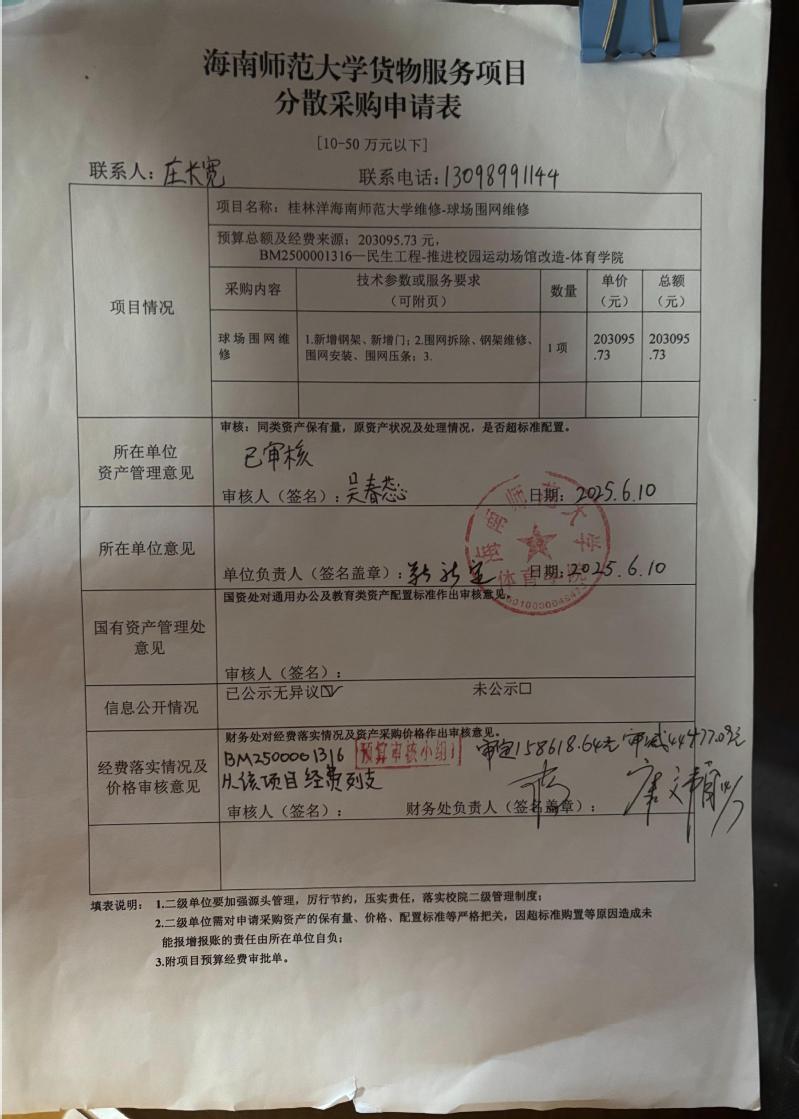 海南师范大学货物服务项目
分散采购申请表
[10-50 万元以下]
联系人：庄长宽 联系电话：13098991144
项目情况
项目名称：桂林洋海南师范大学维修-球场围网维修
预算总额及经费来源：203095.73 元，
BM2500001316—民生工程-推进校园运动场馆改造-体育学院
采购内容 技术参数或服务要求（可附页） 数量 单价（元） 总额（元）
球场围网维修 1.新增钢架、新增门；2.围网拆除、钢架维修、围网安装、围网压条；3. 1 项 203095.73 203095.73
所在单位
资产管理意见
审核：同类资产保有量，原资产状况及处理情况，是否超标准配置。
已审核
审核人（签名）：吴春蕊 日期：2025.6.10
所在单位意见
海南师范大学
体育学院
单位负责人（签名盖章）： 日期：2025.6.10
国有资产管理处
意见
国资处对通用办公及教育类资产配置标准作出审核意见。
审核人（签名）：
信息公开情况
已公示无异议☑ 未公示□
经费落实情况及
价格审核意见
财务处对经费落实情况及资产采购价格作出审核意见。
BM2500001316 预算审核小组 审定158618.64元 审减44477.09元
从该项目经费列支
审核人（签名）： 财务处负责人（签名盖章）：
填表说明： 1.二级单位要加强源头管理，厉行节约，压实责任，落实校院二级管理制度；
2.二级单位需对申请采购资产的保有量、价格、配置标准等严格把关，因超标准购置等原因造成未
能报增报账的责任由所在单位自负；
3.附项目预算经费审批单。